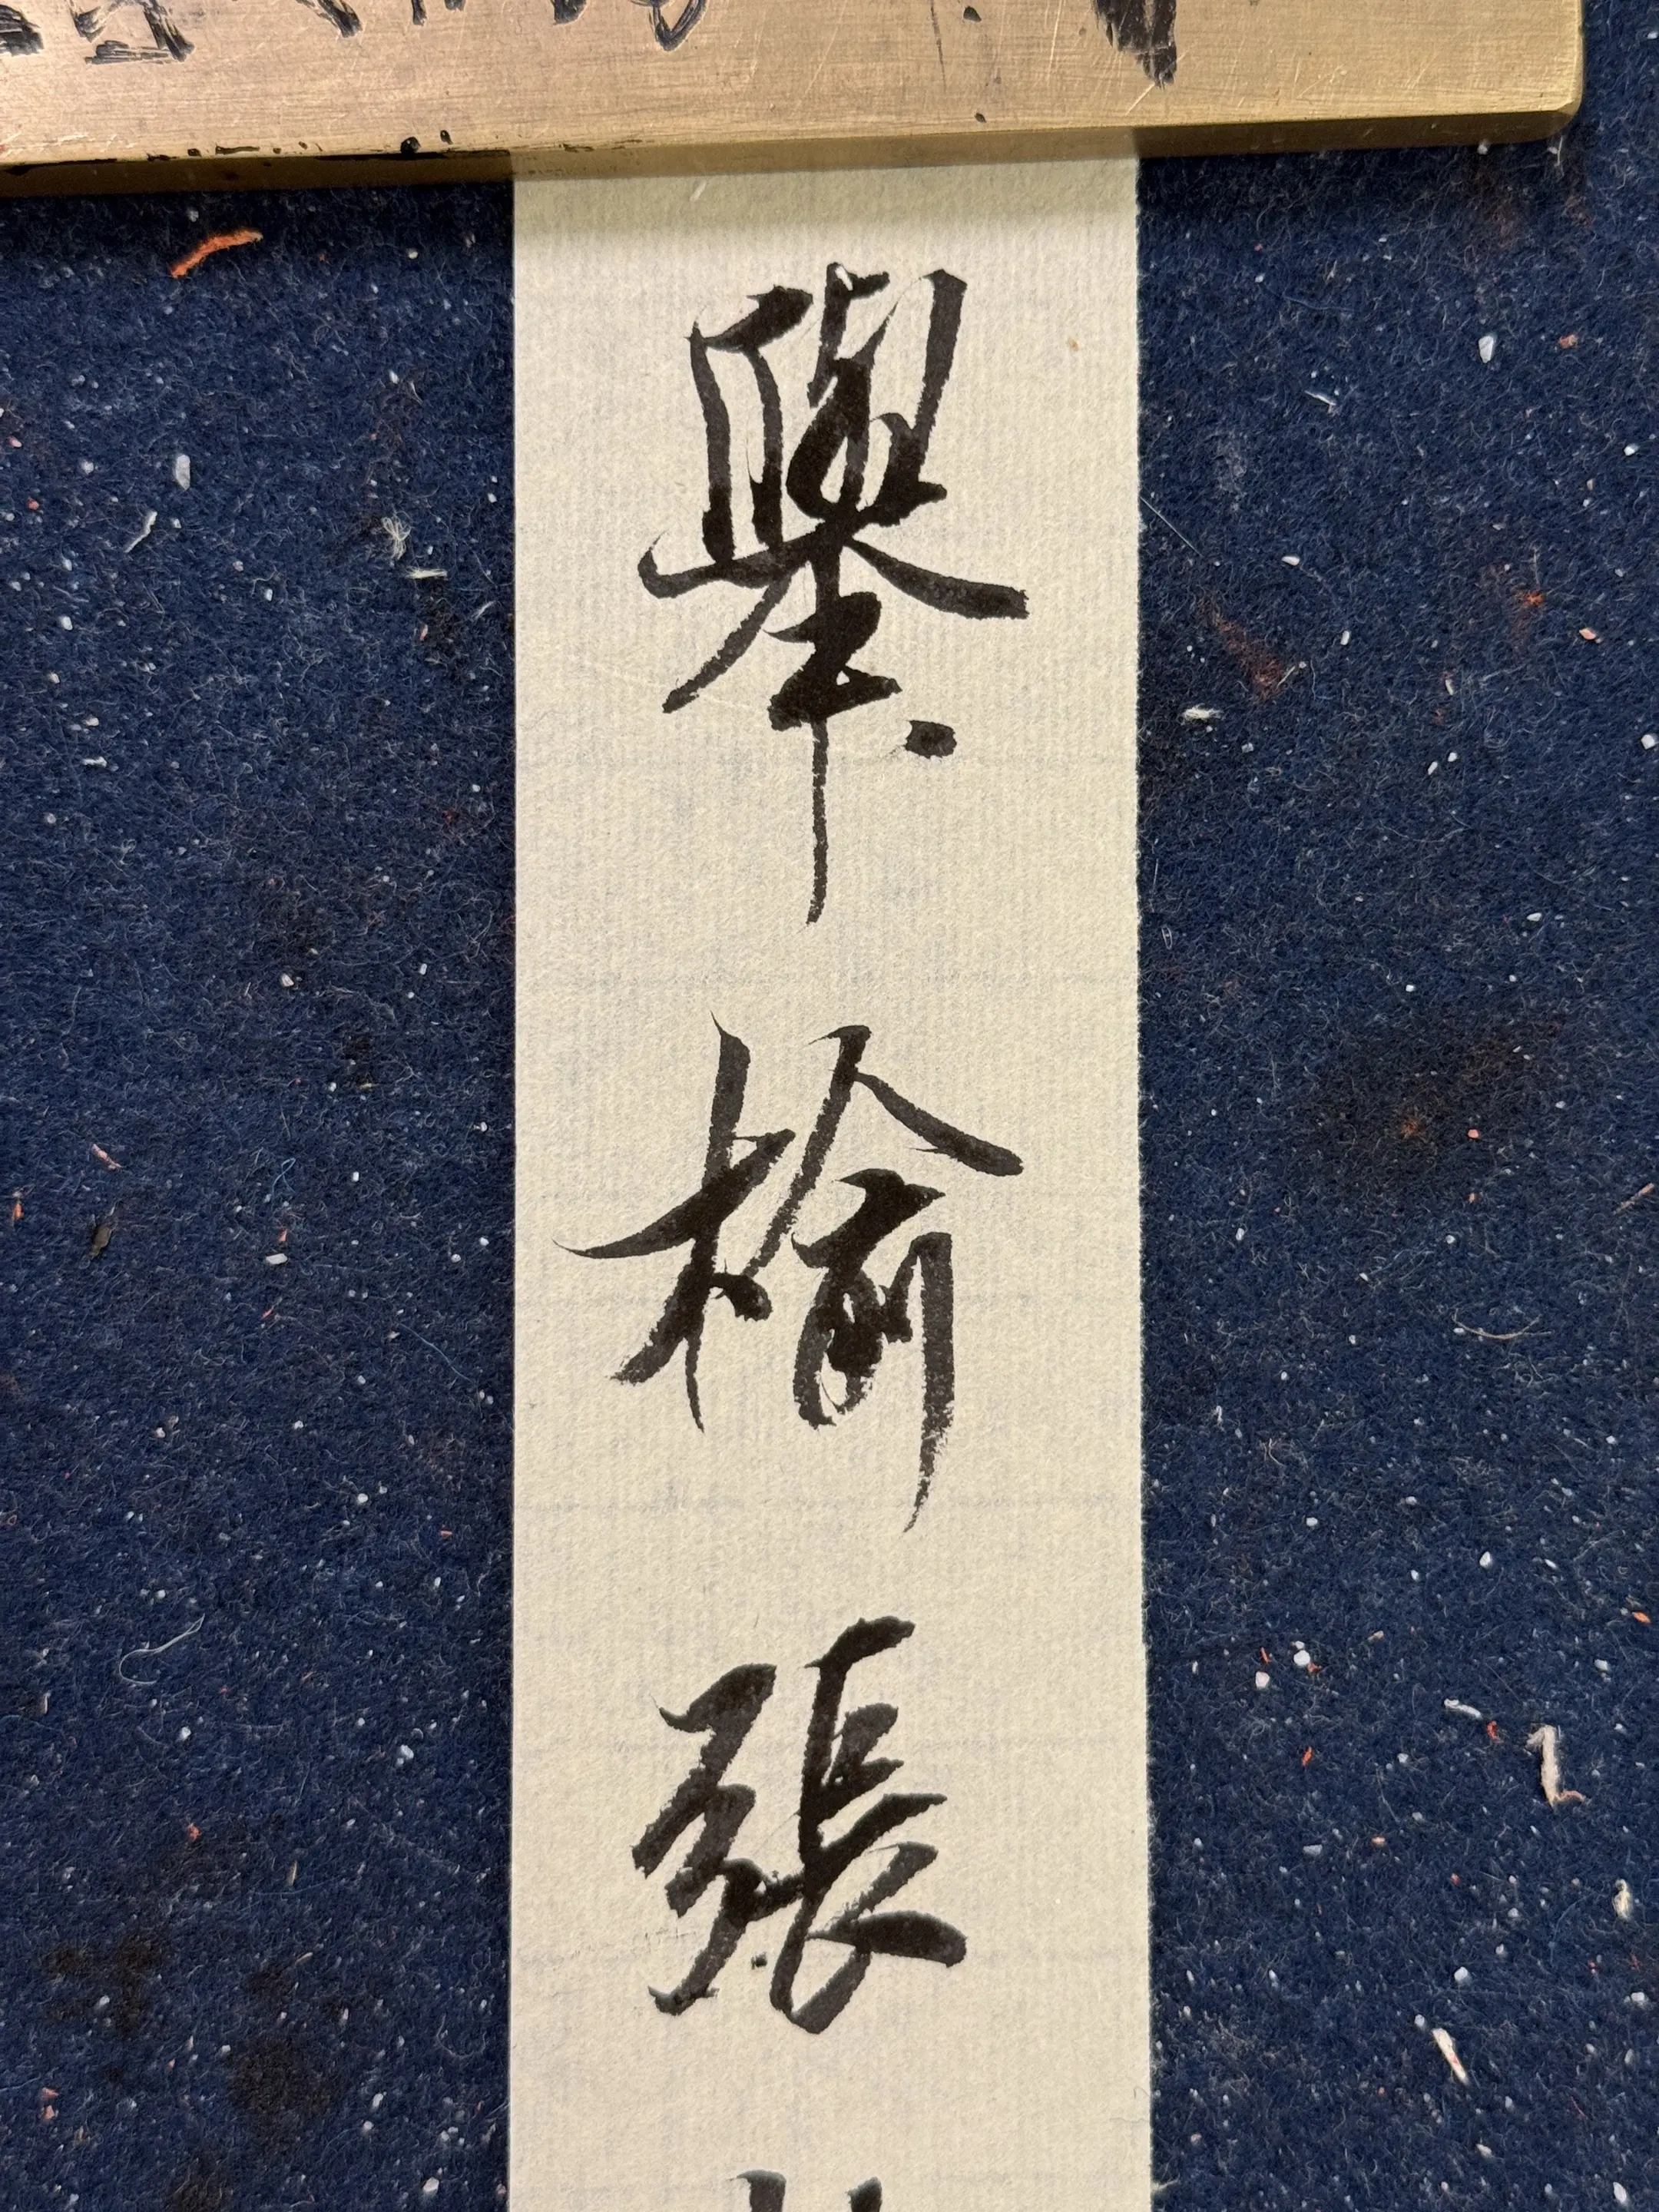 舉榆張